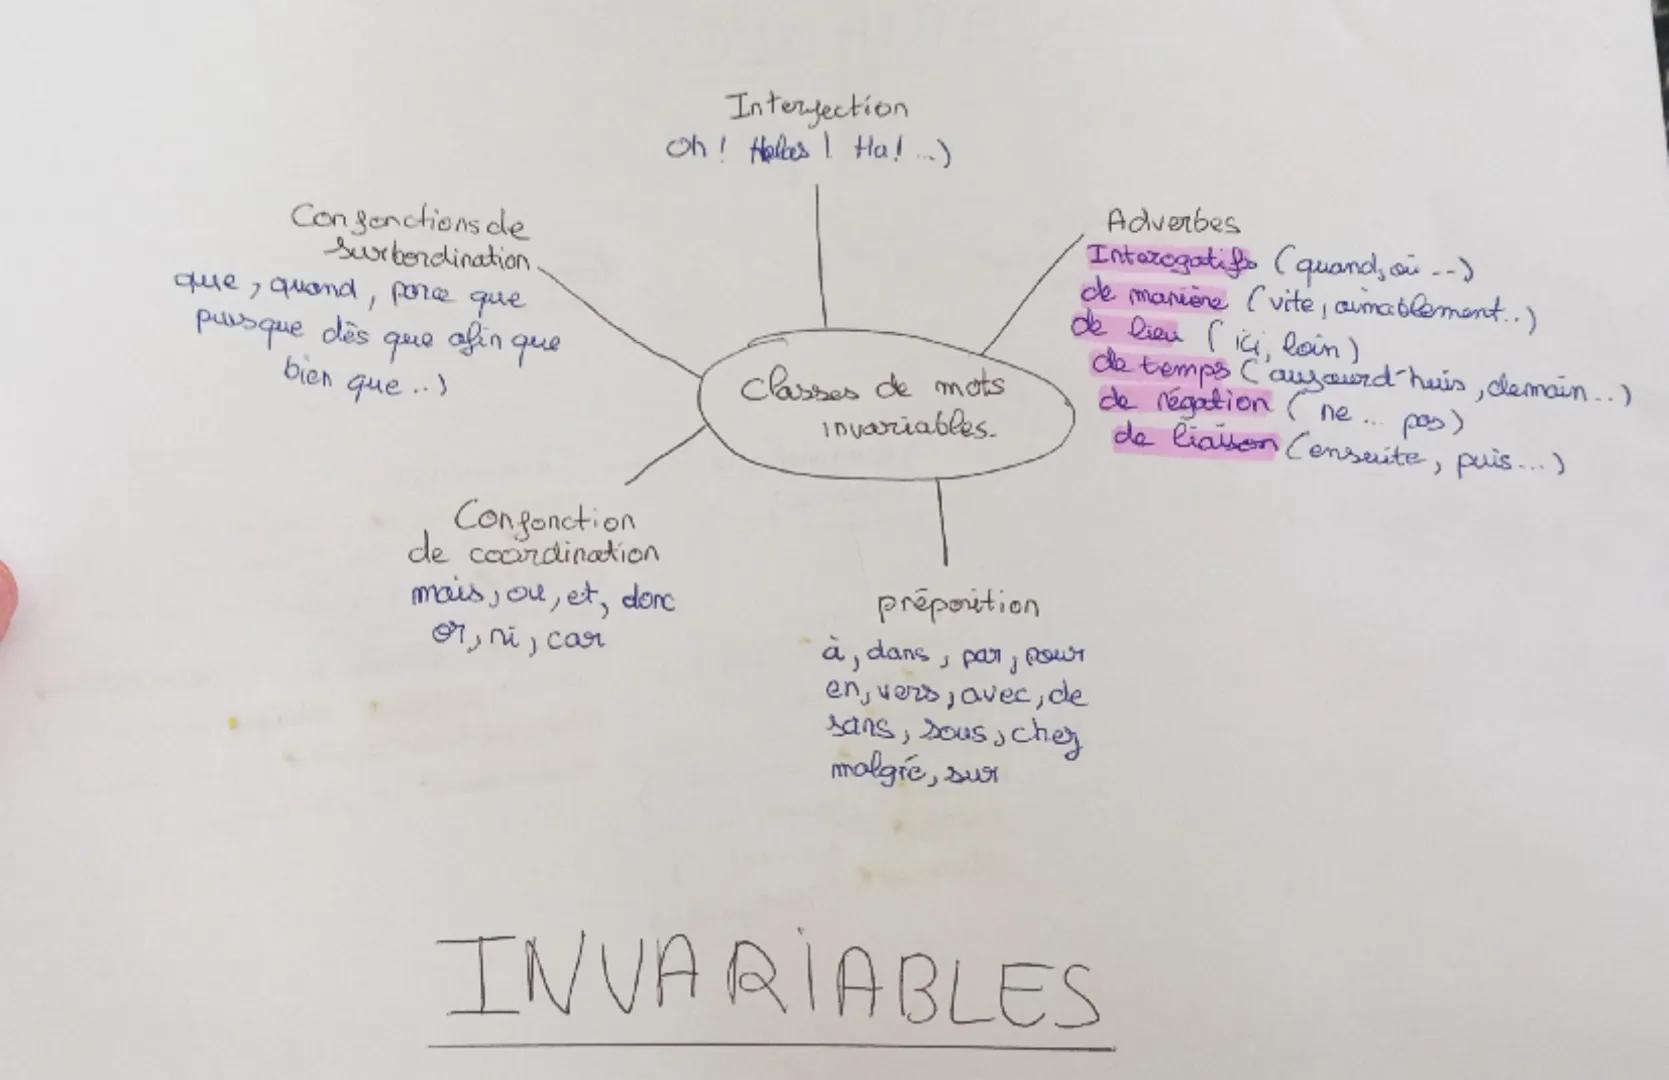 Interjection
Oh ! Helas ! Ha! ...)
Conjonctions de
surbordination
que, quand, parce que
puisque dès que afin que
bien que ..)
Adverbes
Interogatifs (quand, où ...)
de manière (vite, aimablement..)
de lieu (ici, loin)
de temps (aujourd'huis, demain...)
de négation (ne ... pas)
de liaison (ensuite, puis...)
Classes de mots
invariables.
Conjonction
de coordination
mais, ou, et, donc
or, ni, car
préposition
à, dans, par, pour
en, vers, avec, de
sans, sous, chez
malgré, sur
INVARIABLES